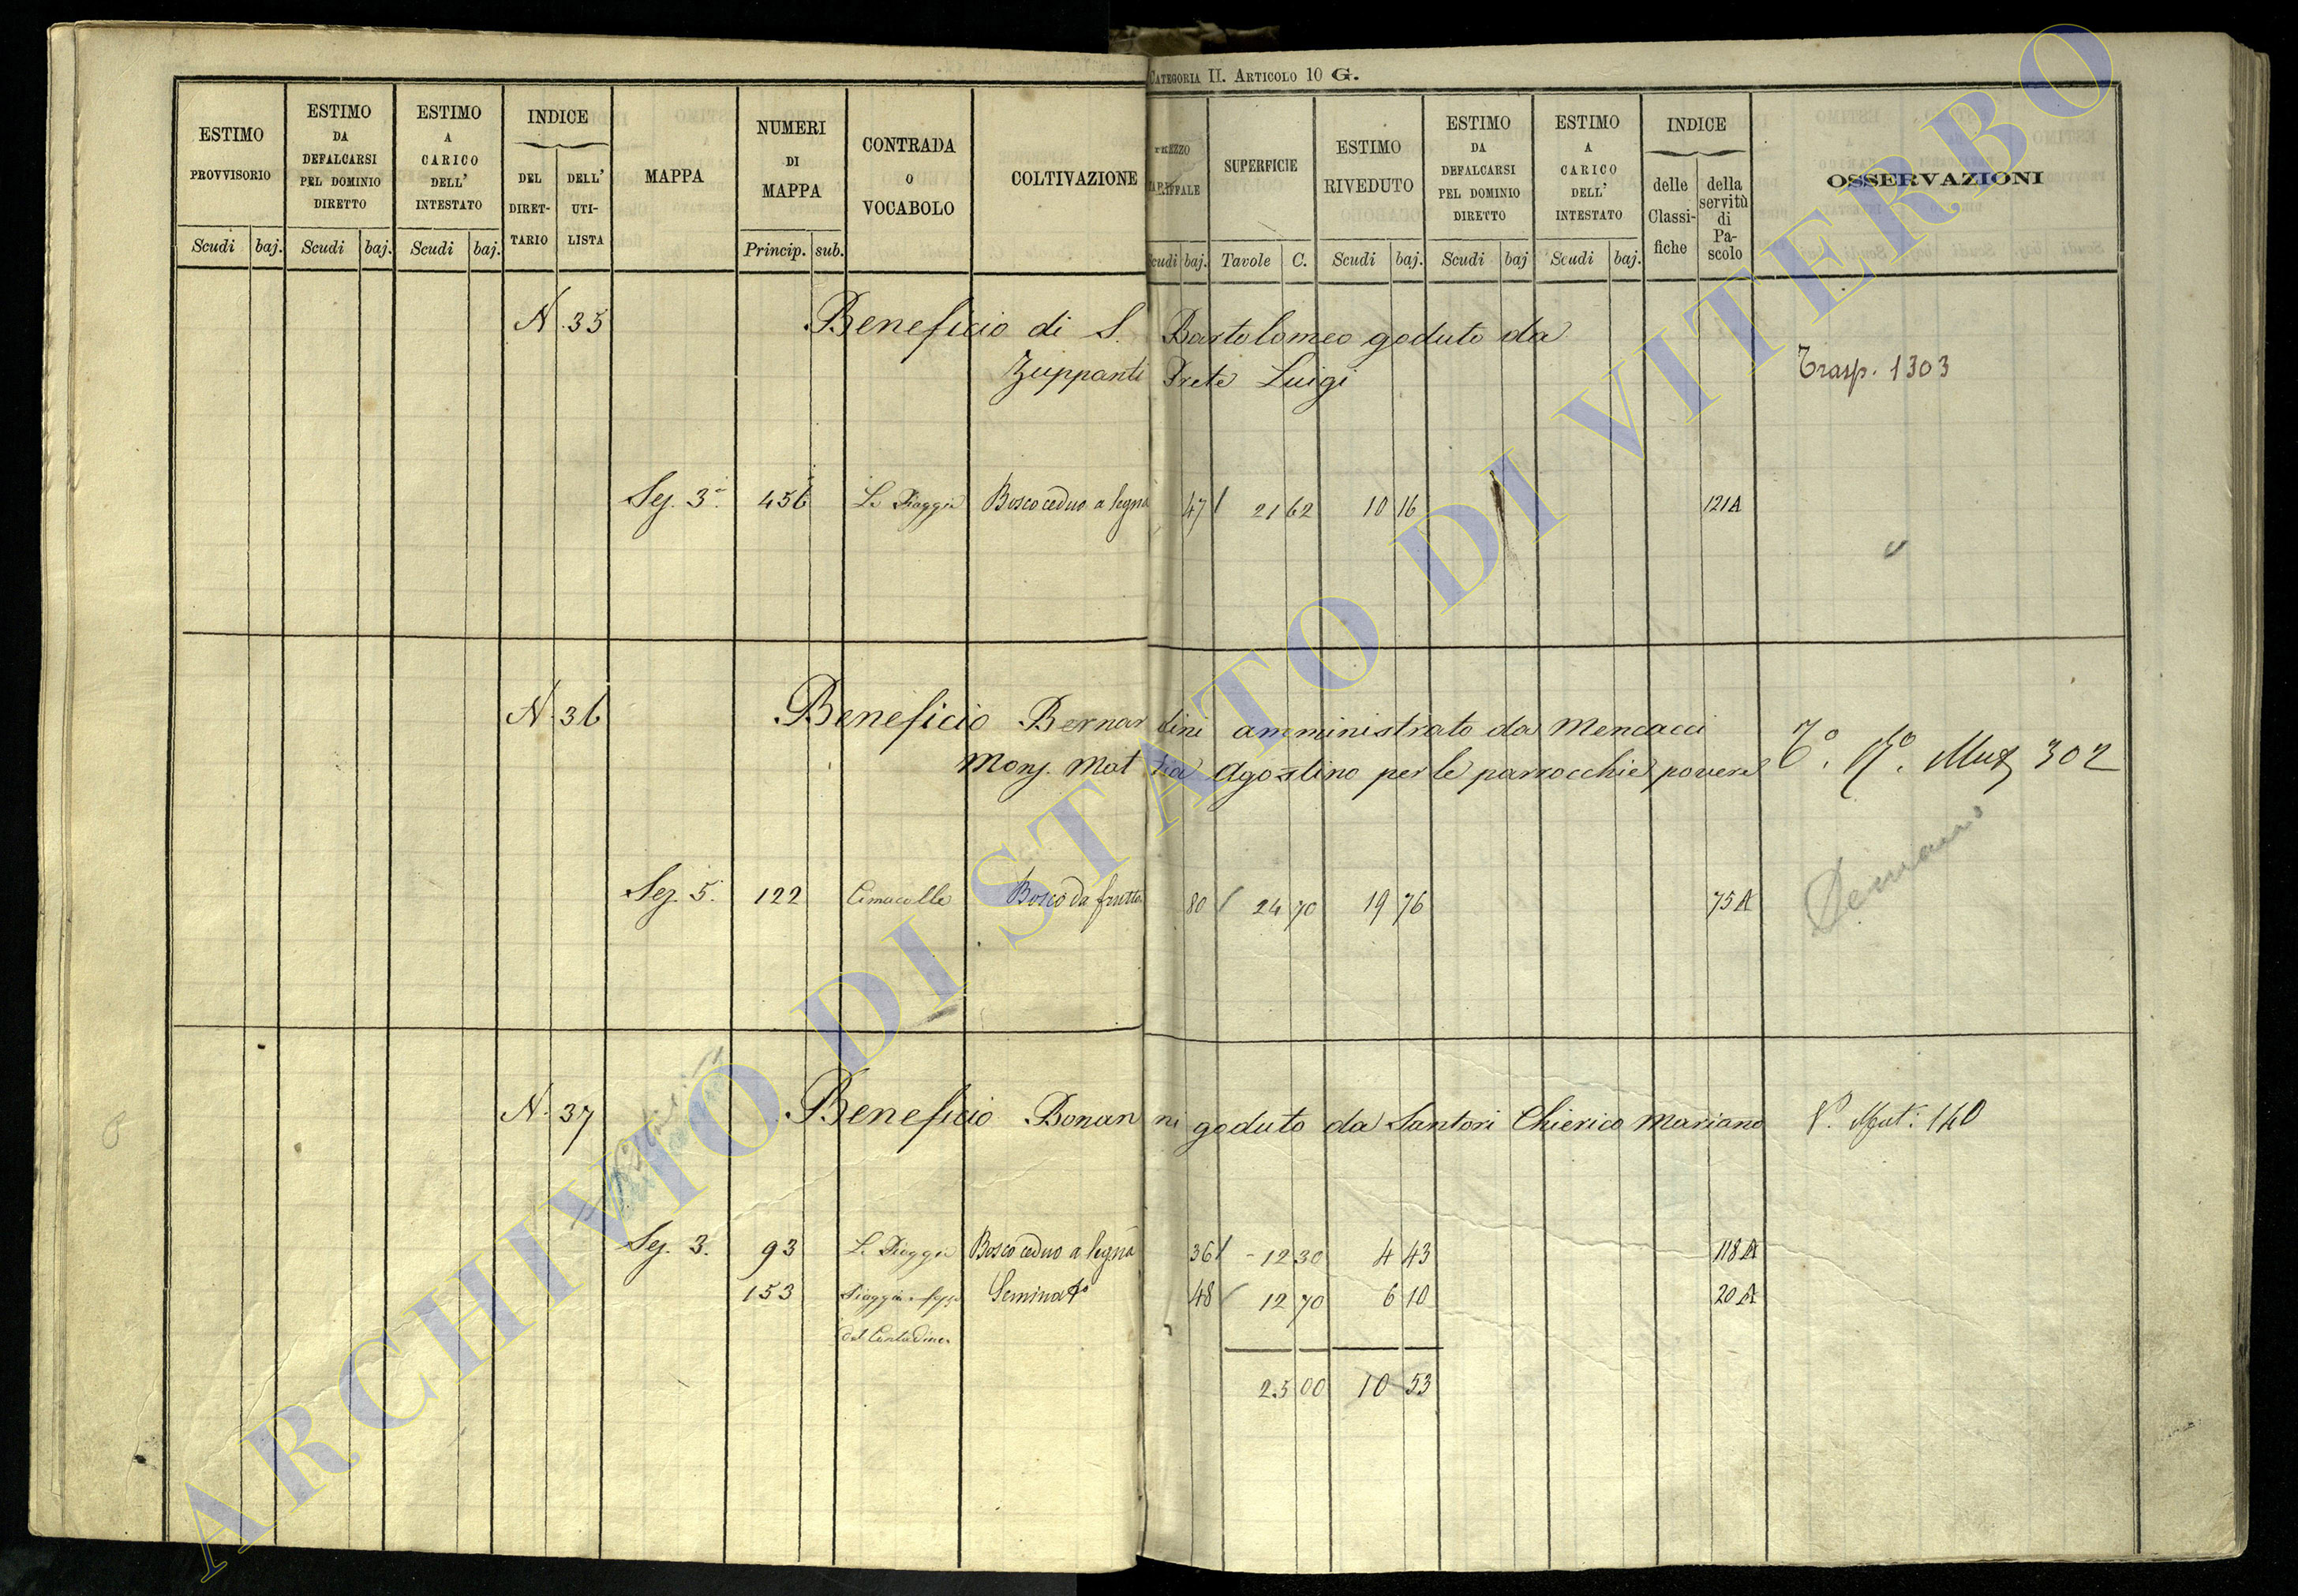 CATEGORIA II. ARTICOLO 10 G.
ESTIMO PROVVISORIO
Scudi baj.
ESTIMO DA DEFALCARSI PEL DOMINIO DIRETTO
Scudi baj.
ESTIMO A CARICO DELL' INTESTATO
Scudi baj.
INDICE
DEL DIRET-
TARIO
DELL' UTI-
LISTA
MAPPA
NUMERI DI MAPPA
Princip. sub.
CONTRADA O VOCABOLO
COLTIVAZIONE
PREZZO
Scudi baj.
SUPERFICIE
Tavole C.
ESTIMO RIVEDUTO
Scudi baj.
ESTIMO DA DEFALCARSI PEL DOMINIO DIRETTO
Scudi baj
ESTIMO A CARICO DELL' INTESTATO
Scudi baj.
INDICE
delle Classi-
fiche
della servitù di Pa-
scolo
OSSERVAZIONI
N. 35 Beneficio di S. Bartolomeo goduto da
Zuppanti Prete Luigi Trasp. 1303
Sez. 3ª 456 Le Piaggie Bosco ceduo a legna 47 21 62 10 16 121A
N. 36 Beneficio Bernardini amministrato da Mencacci
Mons. Mattia Agostino per le parrocchie povere Mut 302
Sez. 5. 122 Cimacolle Bosco da frutto 80 24 70 19 76 75A
Demanio
N. 37 Beneficio Bonanni goduto da Santori Chierico Mariano V. Mut. 140
Sez. 3. 93 Le Piaggie Bosco ceduo a legna 36 12 30 4 43 118A
153 Piaggie Seminato 48 12 70 6 10 20A
del Contadino
25 00 10 53
ARCHIVIO DI STATO DI VITERBO